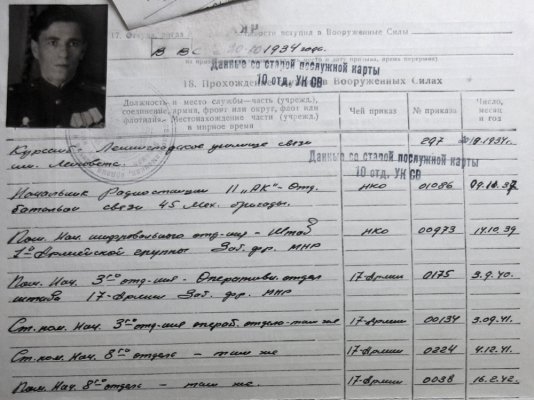 17. Откуда, когда
вступил в Вооруженные Силы
В ВС 20.10 1934 года.
Данные со старой послужной карты
10 отд. УК СВ
18. Прохождение
в Вооруженных Силах
Должность и место службы—часть (учрежд.), соединение, армия, фронт или округ, флот или флотилия. Местонахождение части (учрежд.) в мирное время
Чей приказ
№ приказа
Число, месяц и год
Курсант - Ленинградское училище связи 297 1934.
им. Ленсовета.
Данные со старой послужной карты
10 отд. УК СВ
Начальник Радиостанции 11 „АК" - Отд. НКО 01086 09.10.37
батальон связи 45 мех. бригады.
Пом. Нач. шифровального отд-ния - Штаб НКО 00973 14.10.39
1ой Армейской группы Заб. фр. МНР
Пом. Нач. 3го отд-ния - Оперативн. отдел 17-Армии 0175 3.9.40.
штаба 17-Армии Заб. фр. МНР
Ст. пом. Нач. 3го отд-ния операт. отдела - там же 17-Армии 00134 3.09.41.
Ст. пом. Нач. 8го отдела - там же 17-Армии 0224 4.12.41.
Пом. Нач. 8го отдела - там же. 17-Армии 0038 16.2.42.